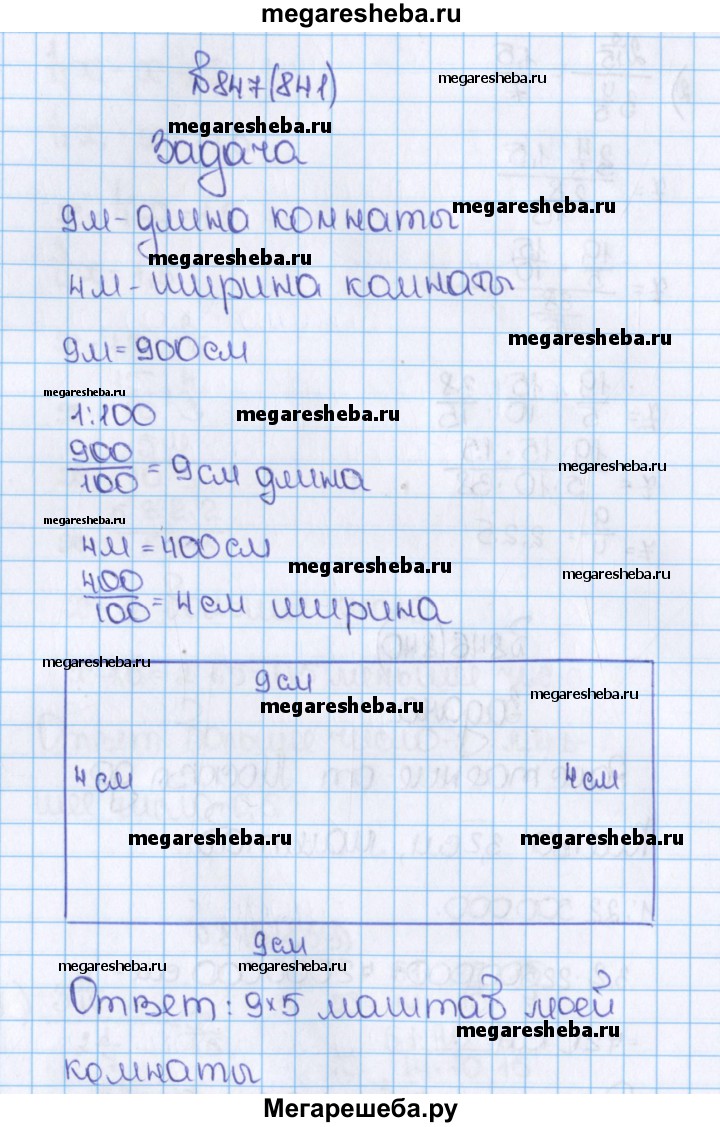 megaresheba.ru
№847(841)
megaresheba.ru
megaresheba.ru
Задача
9м-длина комнаты
megaresheba.ru
megaresheba.ru
4м-ширина комнаты
9м=900см
megaresheba.ru
megaresheba.ru
1:100
megaresheba.ru
900/100 = 9см длина
megaresheba.ru
megaresheba.ru
4м=400см
megaresheba.ru
400/100 = 4см ширина
megaresheba.ru
megaresheba.ru
9см
megaresheba.ru
megaresheba.ru
4см 4см
megaresheba.ru megaresheba.ru
9см
megaresheba.ru megaresheba.ru
Ответ: 9×5 маштав моей
megaresheba.ru
комнаты
Мегарешеба.ру